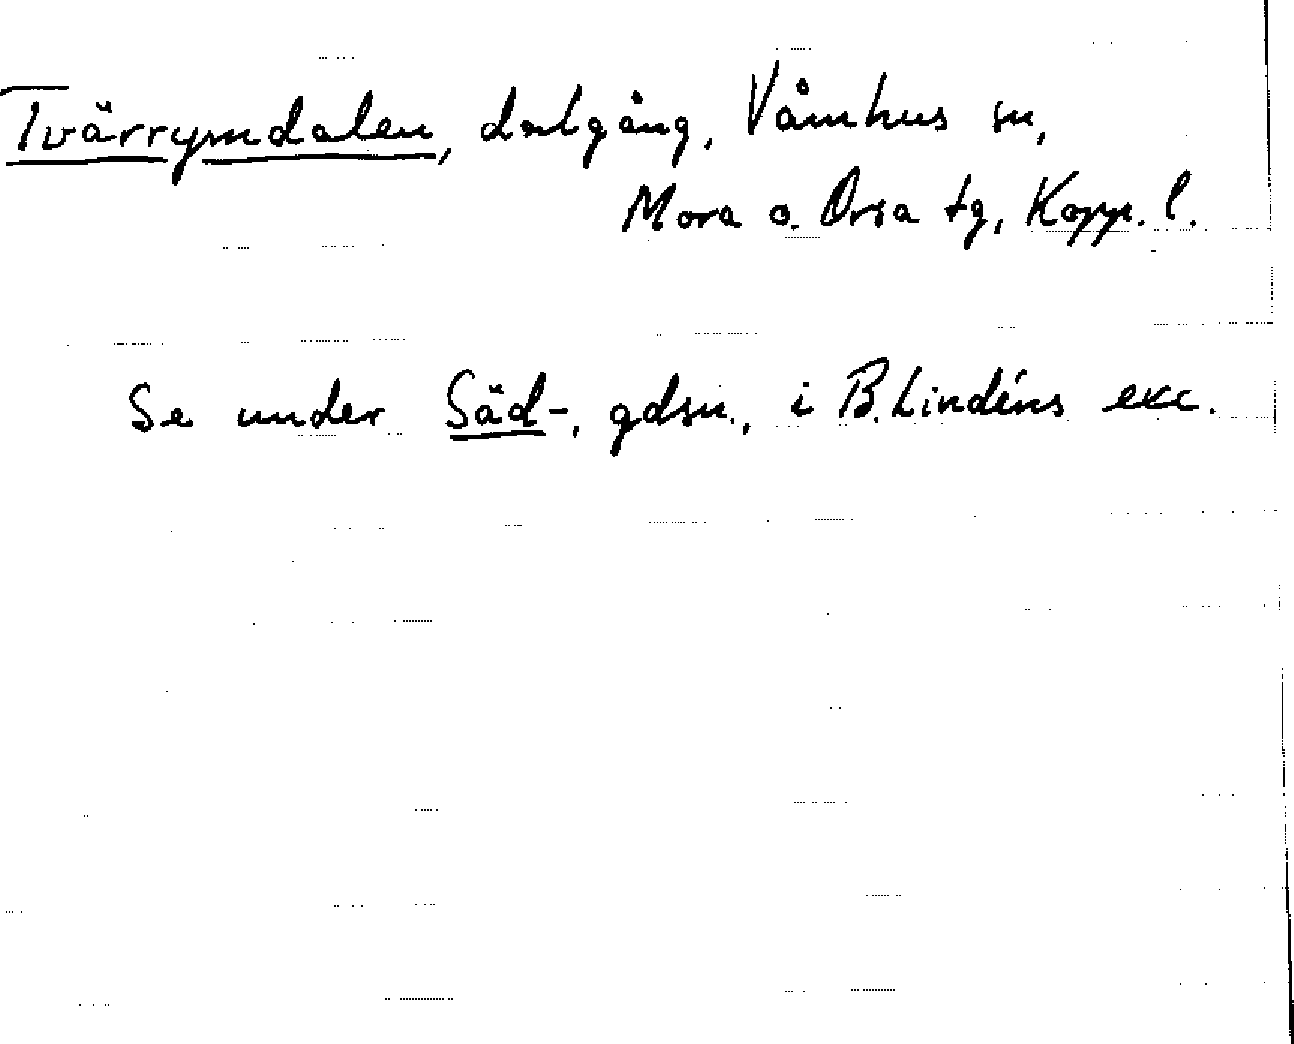 Tvärrymdalen, dalgång, Våmhus sn,
Mora o. Orsa tg, Kopp. l.
Se under Säd-, gdsn., i B. Lindéns exc.